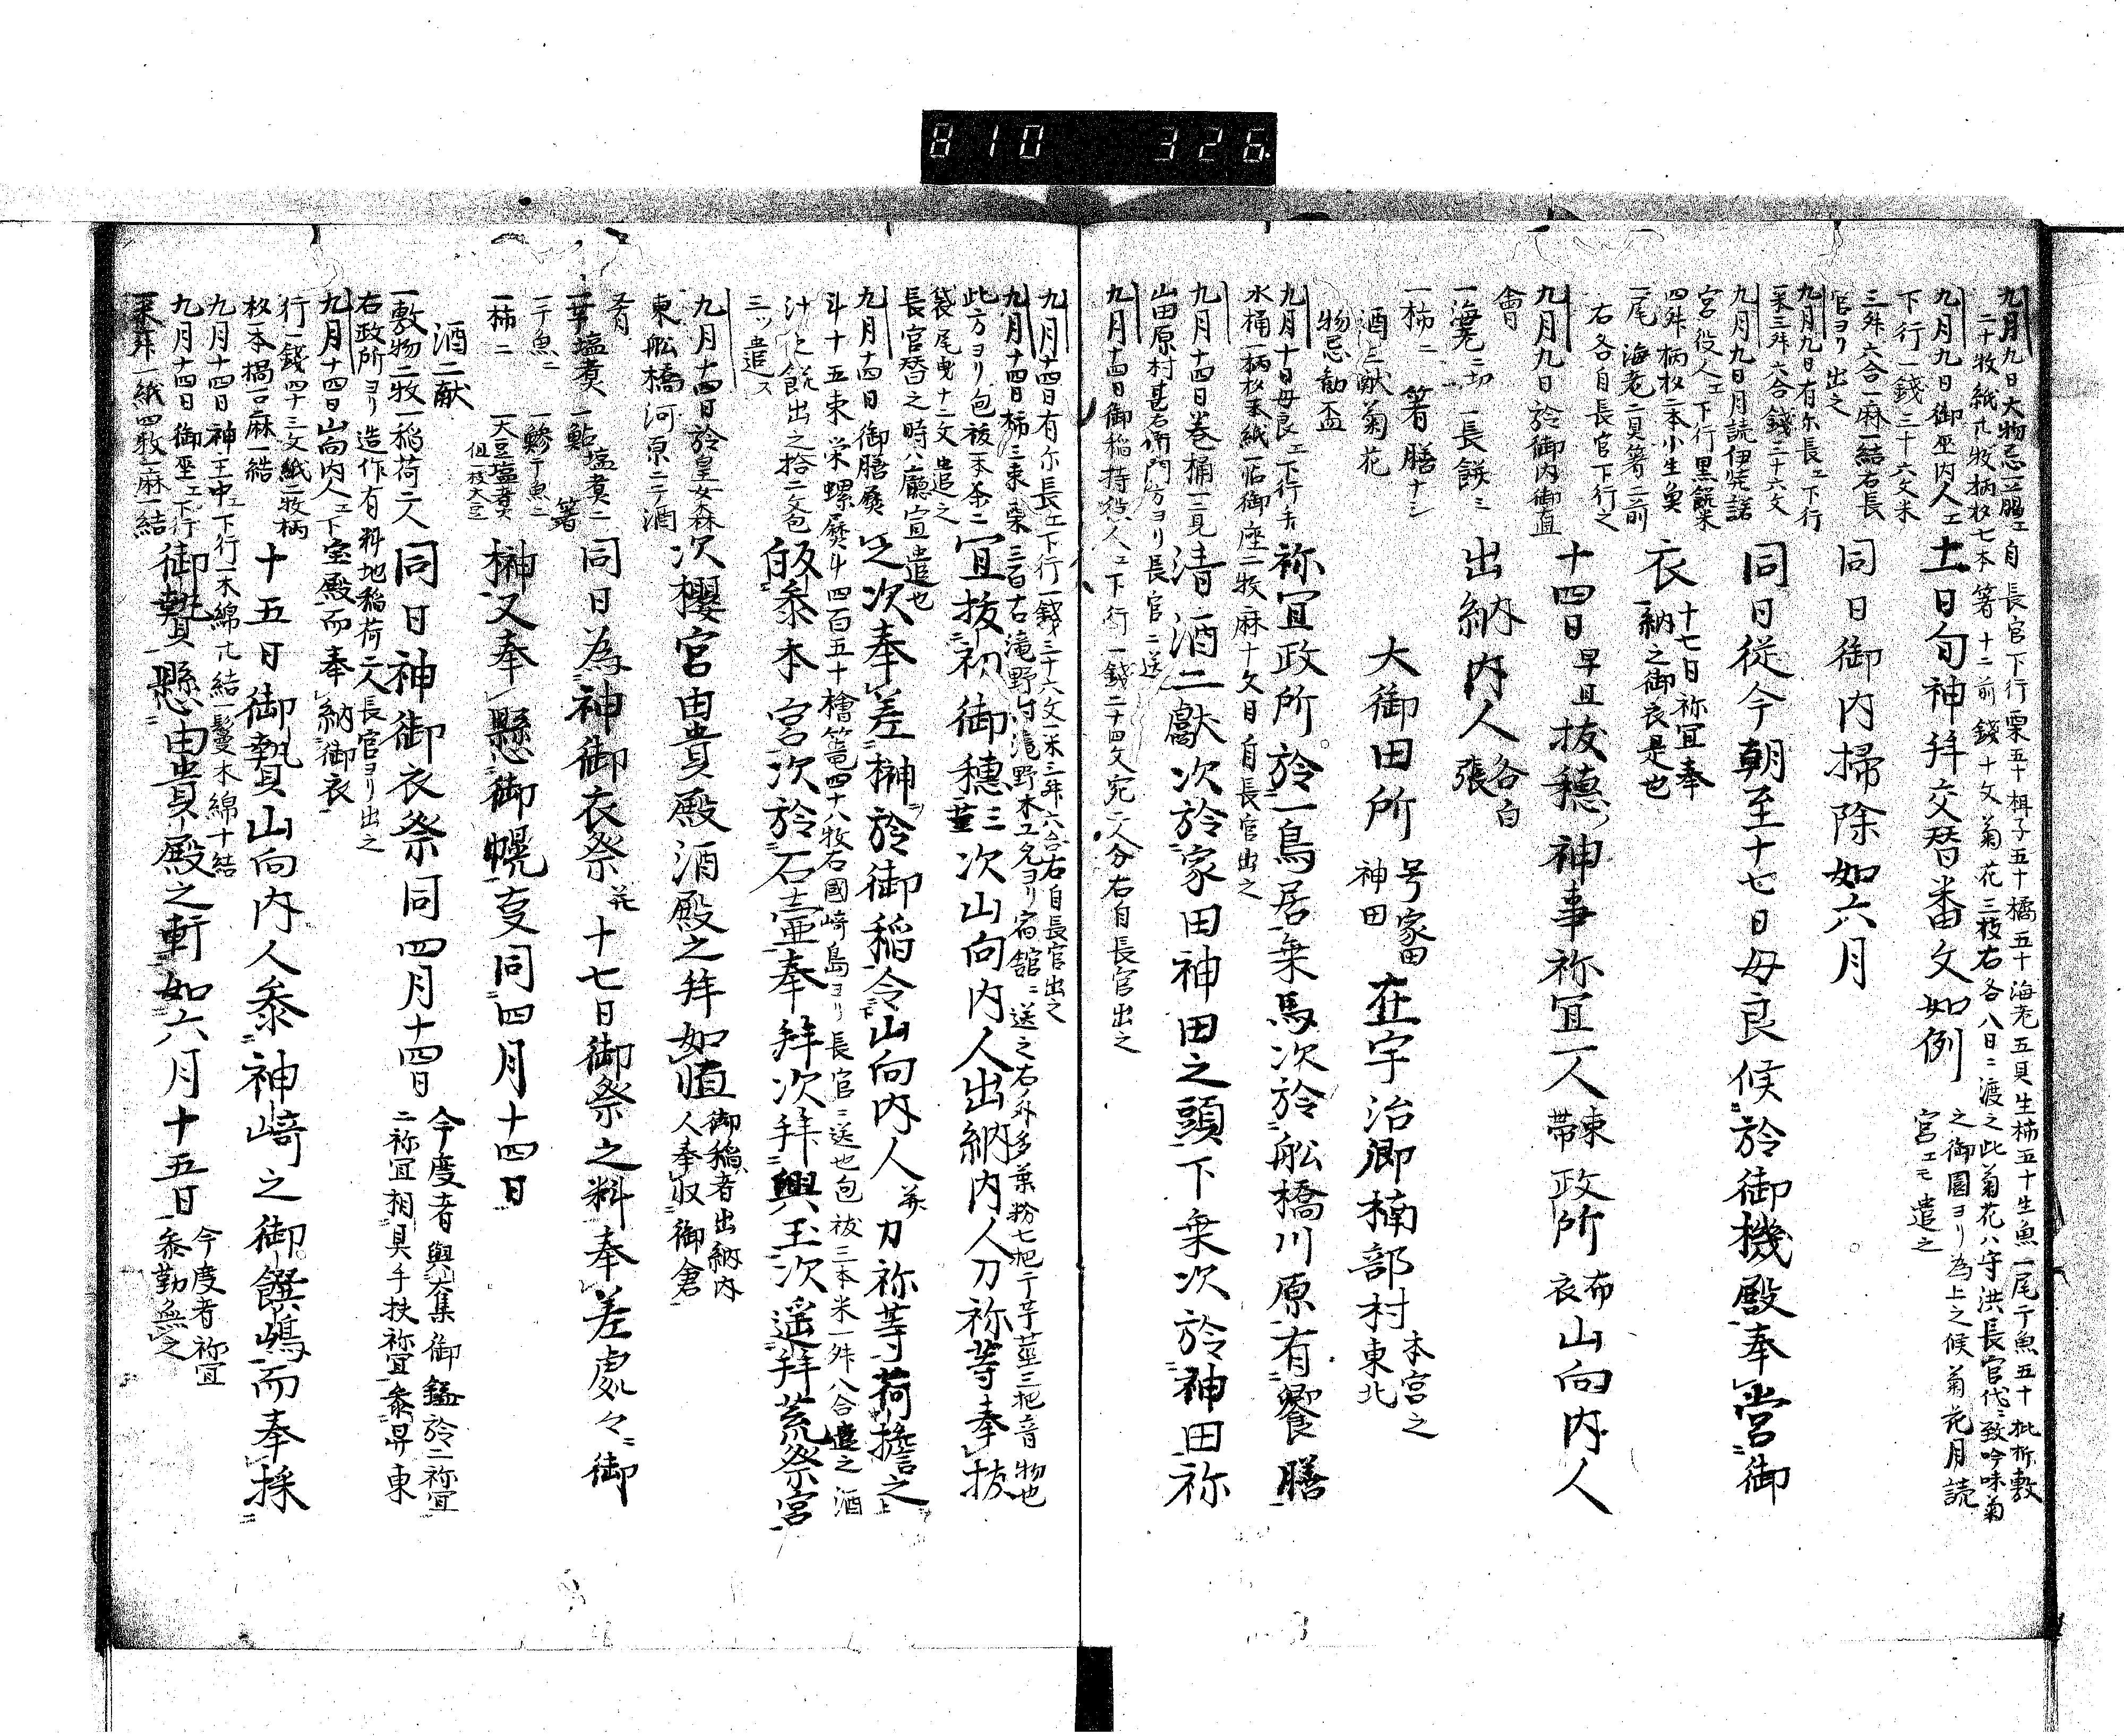 810 326
九月九日大物忌一﨟エ自長官下行栗五十梠子五十橘五十海老五具生柿五十生魚一尾干魚五十枇折敷
二十牧紙廿牧柄杓七本箸十二前錢十文菊花三枝右各八日ニ渡之此菊花ハ守洪長官代致吟味菊
之御園ヨリ為上之候菊花月読
宮エモ遣之
九月九日御巫内人エ
下行一錢三十六文米
三舛六合一麻一結右長
官ヨリ出之
十一日旬神拜交替番文如例
同日御内掃除如六月
九月九日有尓長エ下行
一米三舛六合錢三十六文
九月九日月読伊弉諾
宮役人エ下行黒飯米
四舛柄杓二本小生魚
一尾海老二具箸二前
右各自長官下行之
同日従今朝至十七日毋良候於御機殿奉営御
衣十七日祢宜奉
納之御衣是也
九月九日於御内御直
會
一海老二切一長餅三
一柿二箸膳ナシ
酒三献菊花
物忌勧盃
十四日早旦抜穂神事祢宜一人束帯政所布衣山向内人
出納内人各白張
大御田所号家田神田在宇治郷楠部村本宮之東北
九月十日毋良エ下行手
水桶一柄杓一本紙一帖御座一牧麻十文目自長官出之
祢宜政所於一鳥居乗馬次於舩橋川原有饗膳
九月十四日巻桶一二見
山田原村甚右衛門方ヨリ長官ニ送
清酒二獻次於家田神田之頭下乗次於神田祢
九月十四日御稲持役人エ下行一錢二十四文宛一人分右自長官出之
九月十四日有尓長エ下行一錢三十六文米三舛六合右自長官出之
九月十四日柿三束栗三百右滝野村滝野木工允ヨリ宿舘ニ送之右ノ外多葉粉七把干芋莖三把音物也
此方ヨリ包祓一本茶二
袋尾曳十二文遣之
長官替之時ハ廳宣遣也
宜抜初御穗三莖次山向内人出納内人刀祢等奉抜
九月十四日御膳燹
斗十五束栄螺燹斗四百五十檜篭四十八牧右國崎島ヨリ長官ニ送也包祓三本米一舛八合遣之酒
汁と飯出之拾二文包
三ツ遣ス
之次奉差榊於御稲令山向内人并刀祢等荷擔之上
皈參本宮次於石壷奉拜次拜興玉次遥拜荒祭宮
九月十四日於皇女森
東舩橋河原ニテ酒
肴
次櫻宮由貴殿酒殿之拜如恒御稲者出納内
人奉収御倉
一芋塩煮一鮎塩煮二
一干魚二一鯵干魚二箸
一柿二一大豆塩煮但一枝大豆
酒二献
同日為神御衣祭并十七日御祭之料奉差處々御
榊又奉懸御幌叓同四月十四日
一敷物二牧一稲荷二人
右政所ヨリ造作有料地稲荷二人長官ヨリ出之
同日神御衣祭同四月十四日今度者與奪集御鎰於二祢宜
二祢宜相具手扶祢宜參昇東
九月十四日山向内人エ下
行一錢四十三文紙二牧柄
杓一本搗口麻一結
宝殿而奉納御衣
九月十四日神主中エ下行一木綿廿結一鬘木綿十結
十五日御贄山向内人參神﨑之御饌嶋而奉採
九月十四日御巫エ下行
一米舛一紙四牧一麻一結
御贄懸由貴殿之軒如六月十五日今度者祢宜
參勤無之